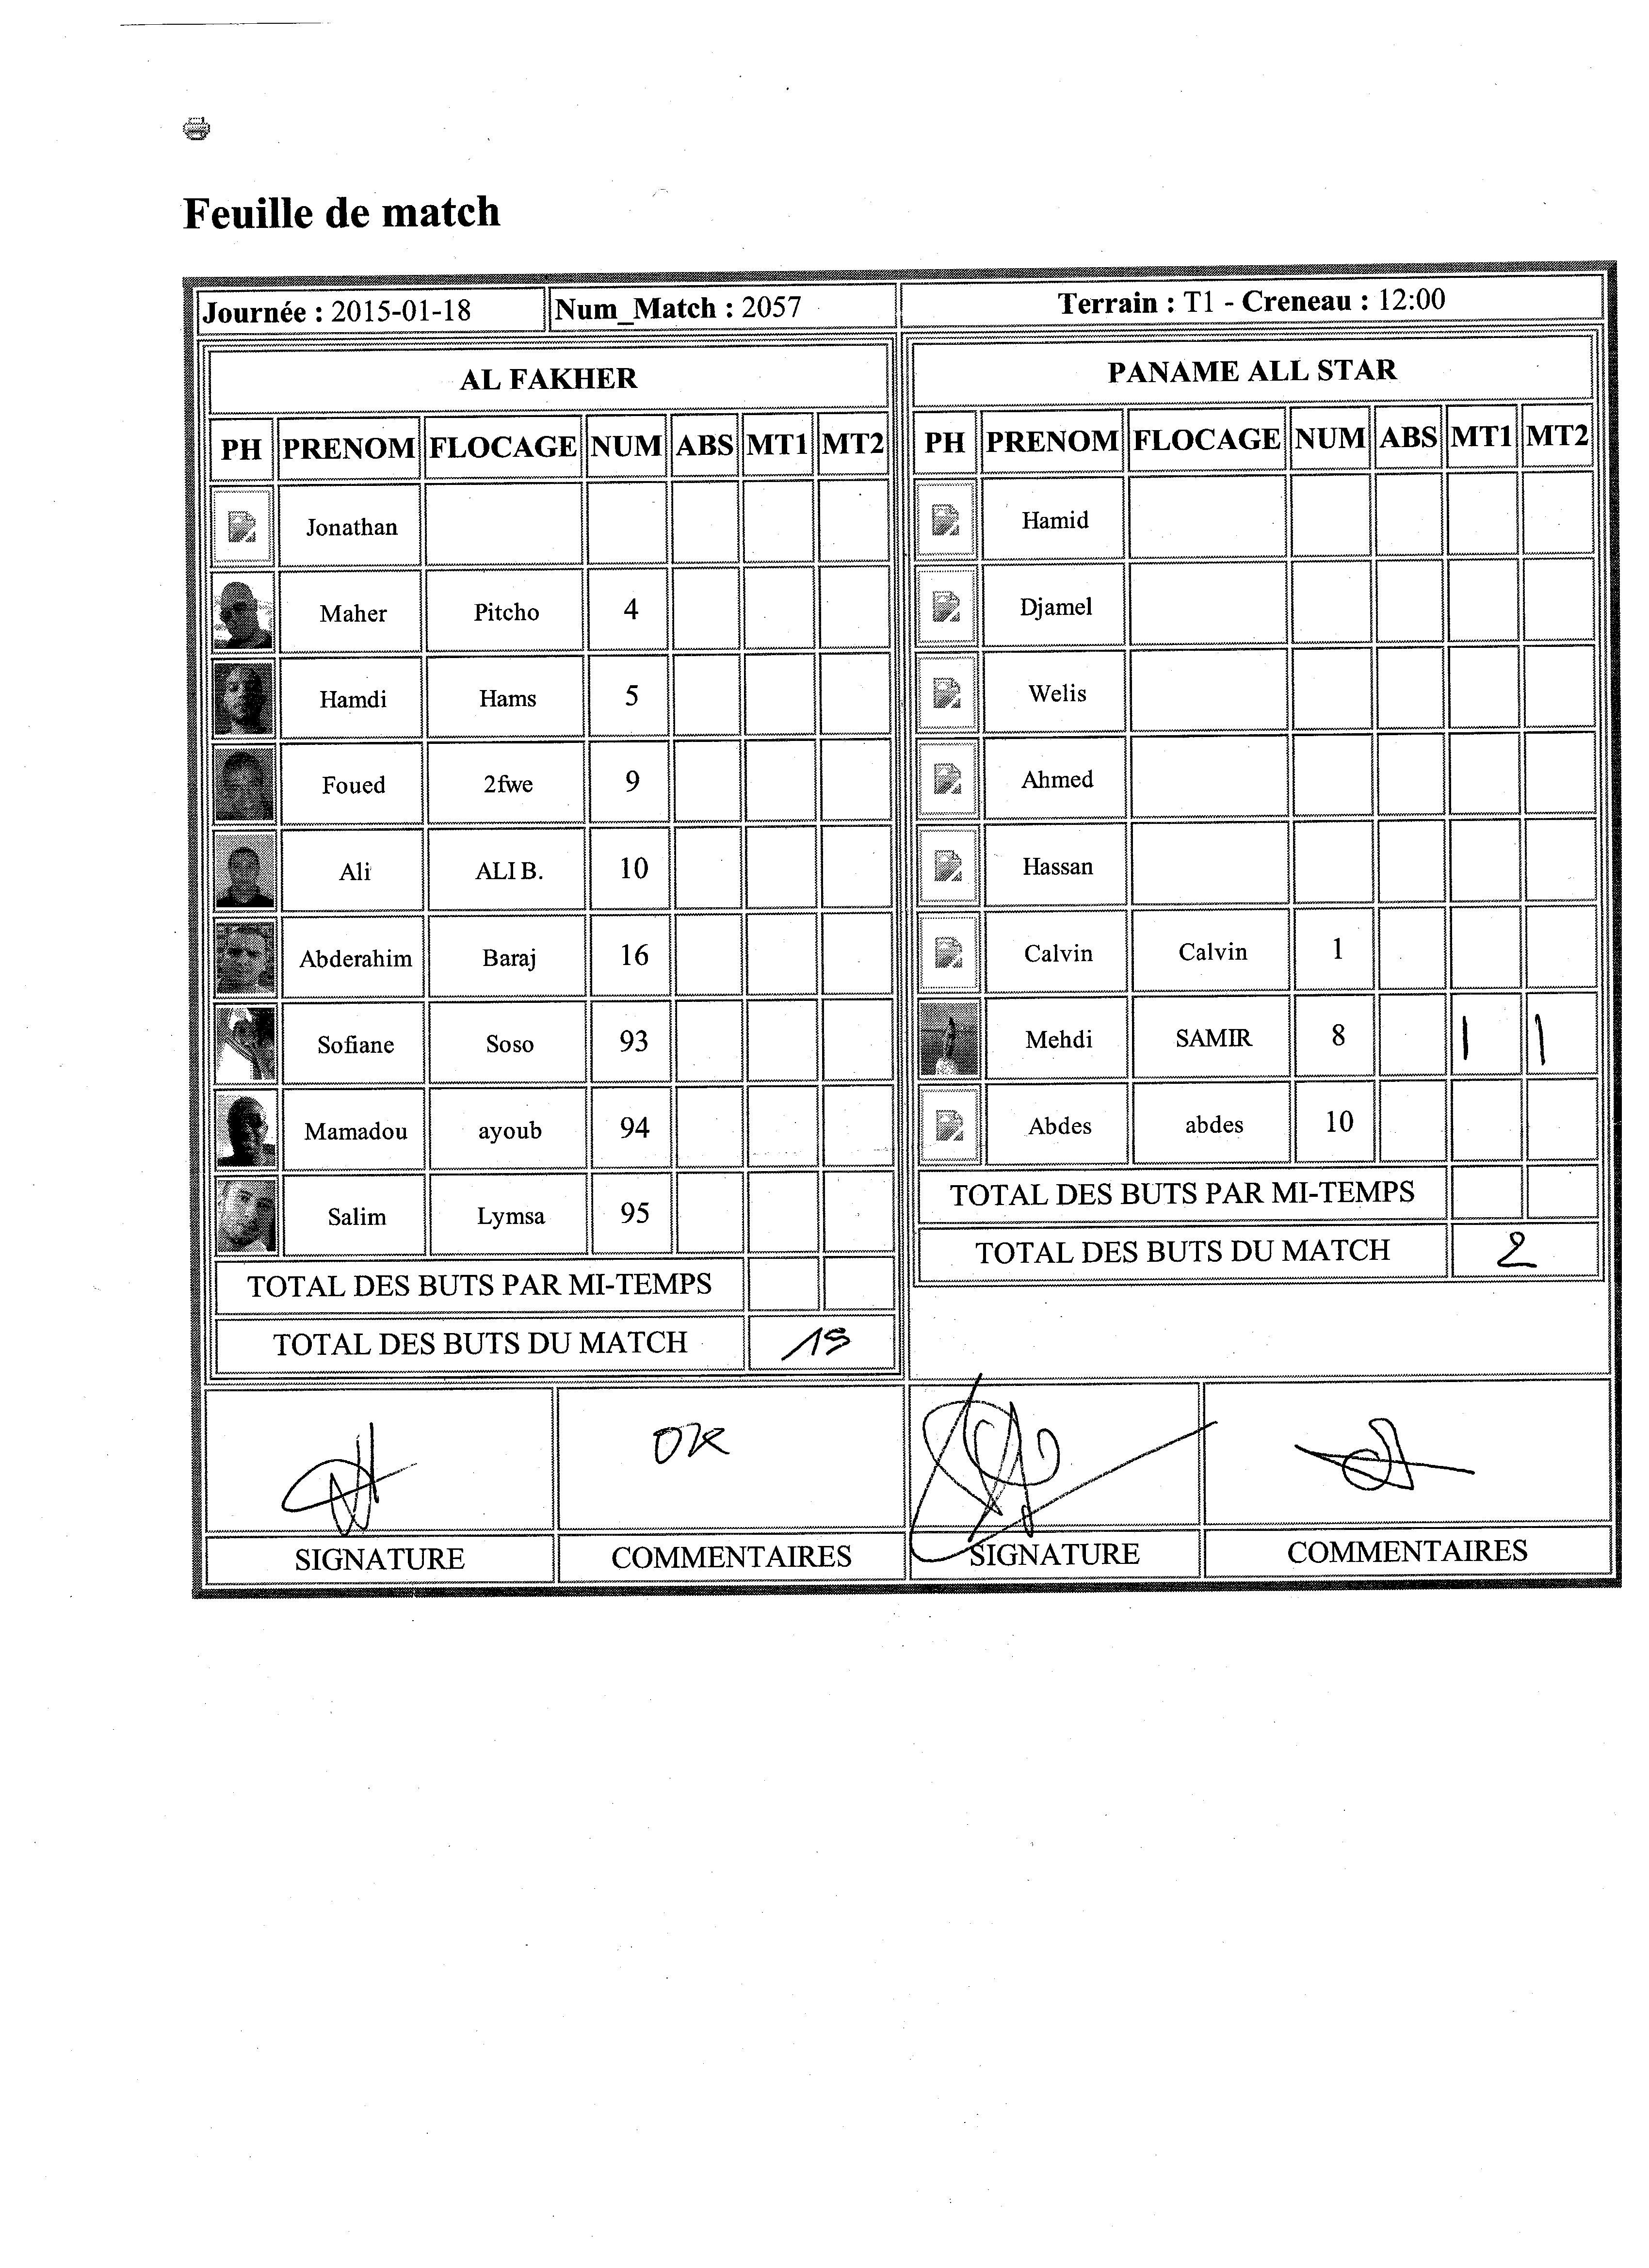 Feuille de match
Journée : 2015-01-18 Num_Match : 2057 Terrain : T1 - Creneau : 12:00
AL FAKHER
PH PRENOM FLOCAGE NUM ABS MT1 MT2
Jonathan
Maher Pitcho 4
Hamdi Hams 5
Foued 2fwe 9
Ali ALI B. 10
Abderahim Baraj 16
Sofiane Soso 93
Mamadou ayoub 94
Salim Lymsa 95
TOTAL DES BUTS PAR MI-TEMPS
TOTAL DES BUTS DU MATCH
OK
SIGNATURE COMMENTAIRES
PANAME ALL STAR
PH PRENOM FLOCAGE NUM ABS MT1 MT2
Hamid
Djamel
Welis
Ahmed
Hassan
Calvin Calvin 1
Mehdi SAMIR 8 | |
Abdes abdes 10
TOTAL DES BUTS PAR MI-TEMPS
TOTAL DES BUTS DU MATCH 2
SIGNATURE COMMENTAIRES